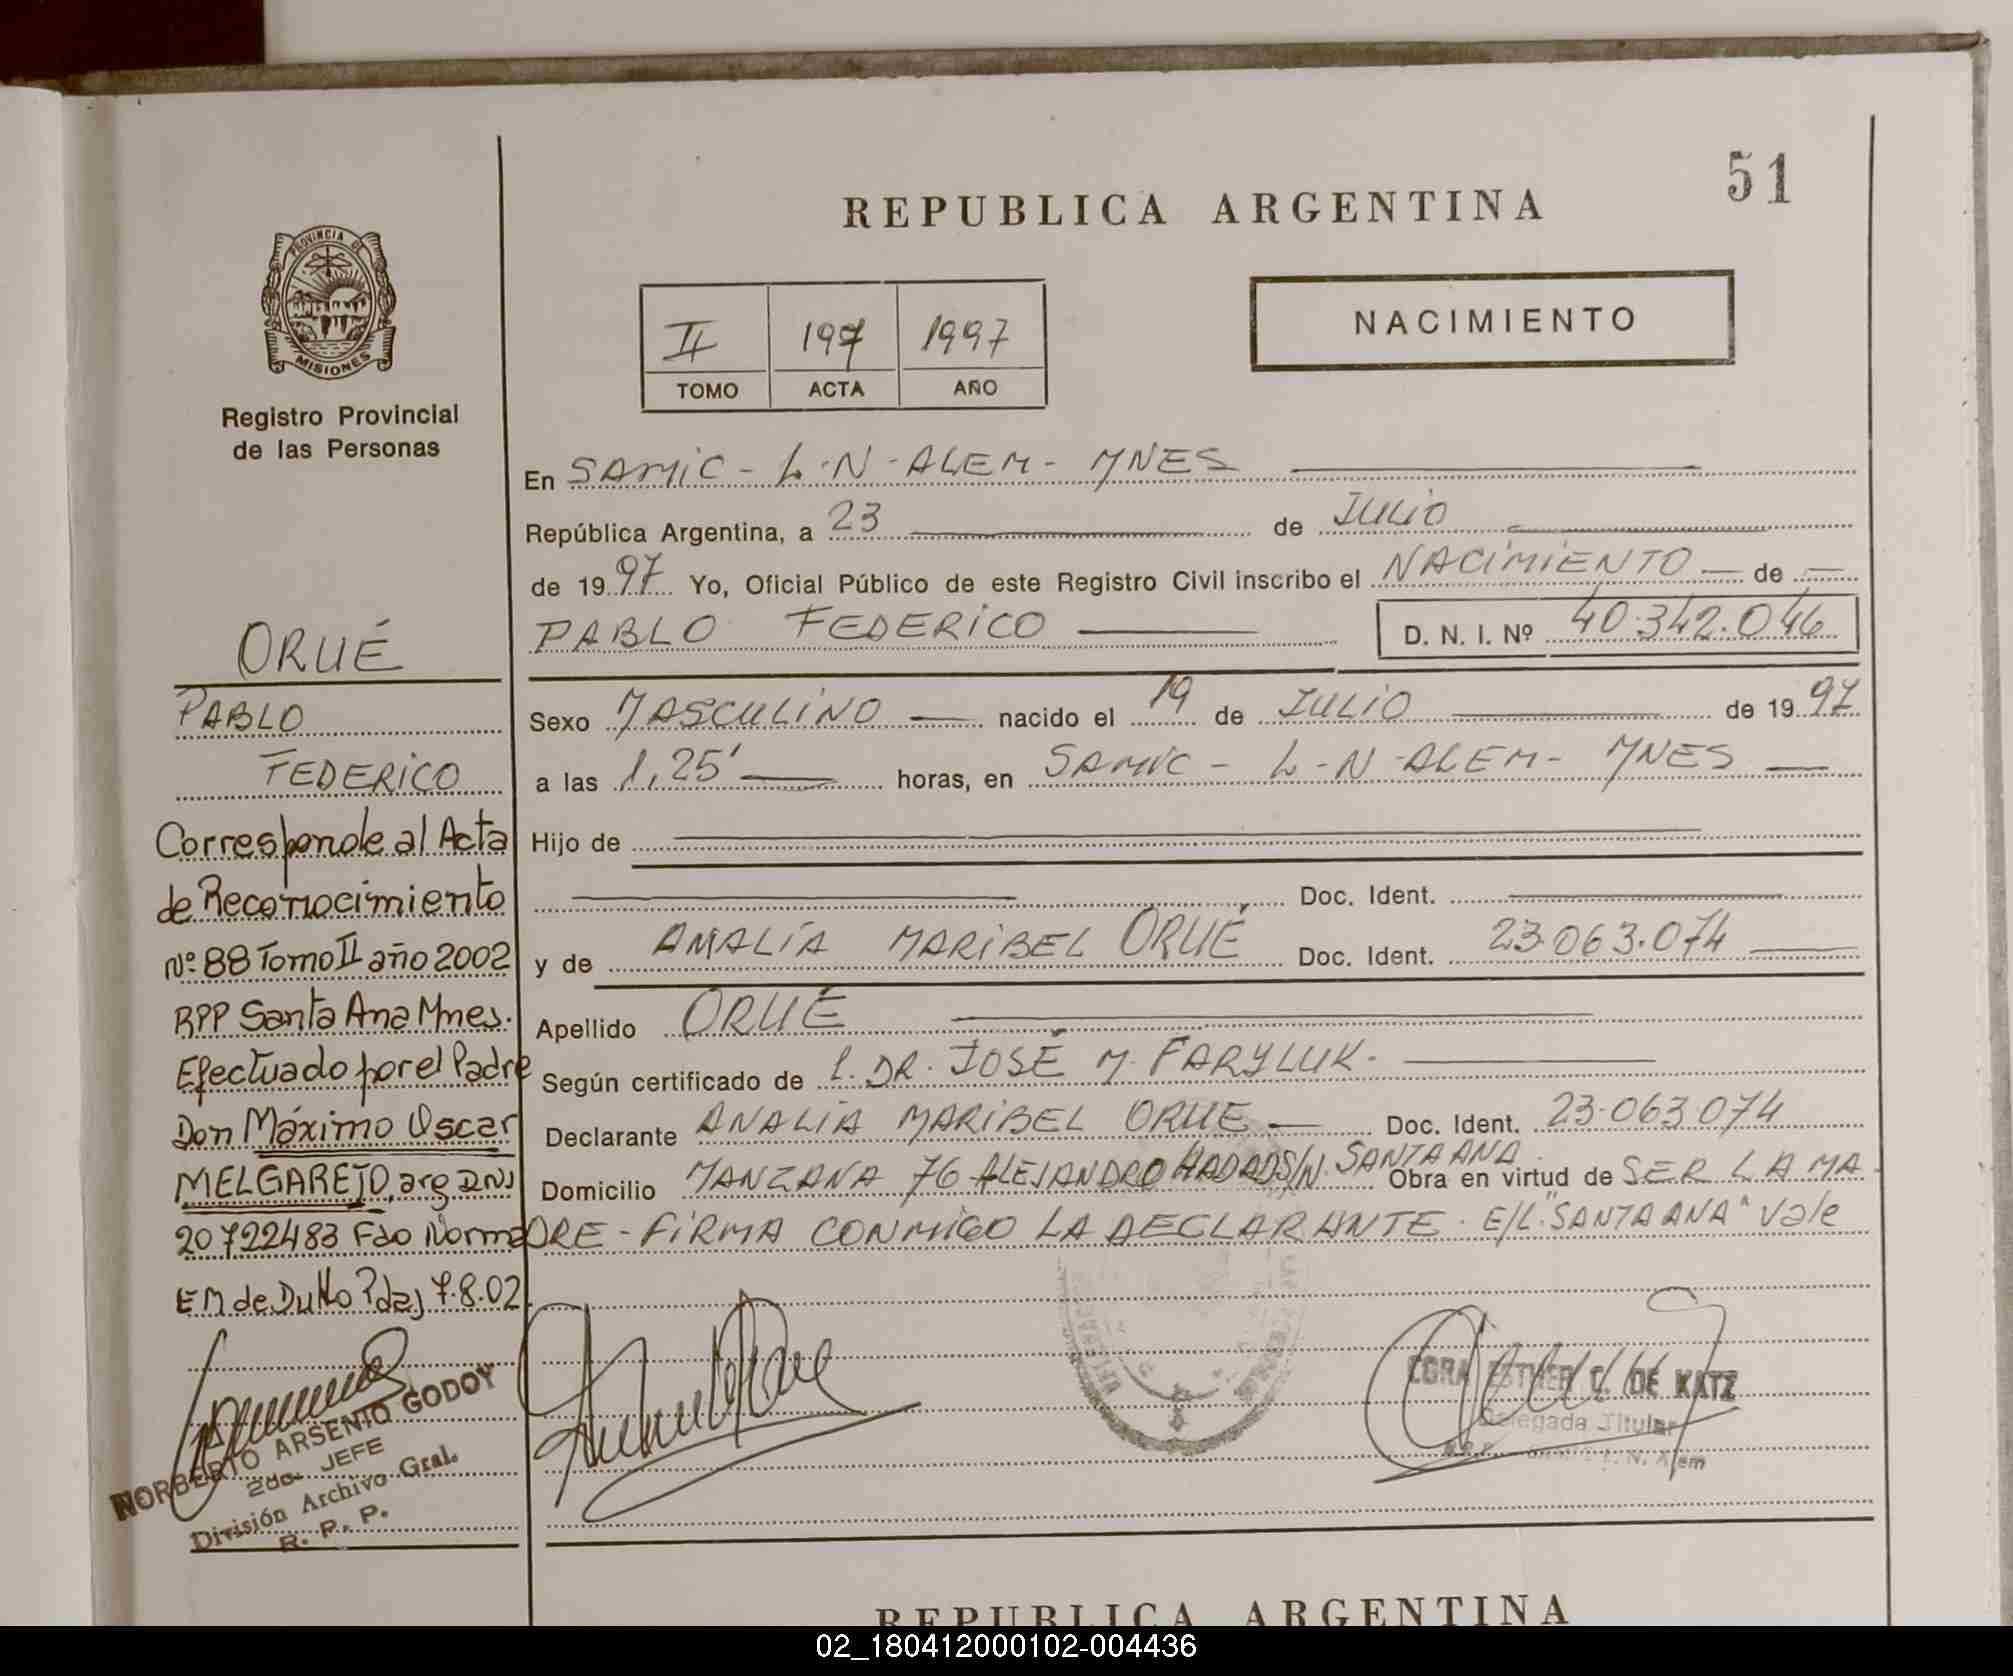 51
REPUBLICA ARGENTINA
PROVINCIA DE
MISIONES
Registro Provincial
de las Personas
II 197 1997
TOMO ACTA AÑO
NACIMIENTO
En SAMIC - L-N-ALEM - MNES
República Argentina, a 23 de JULIO
de 1997 Yo, Oficial Público de este Registro Civil inscribo el NACIMIENTO de
PABLO FEDERICO D. N. I. Nº 40.342.046
Sexo MASCULINO nacido el 19 de JULIO de 1997
a las 1,25' horas, en SAMIC - L-N-ALEM - MNES
Hijo de
Doc. Ident.
y de AMALIA MARIBEL ORUÉ Doc. Ident. 23.063.074
Apellido ORUÉ
Según certificado de L. DR. JOSÉ M. FARYLUK.
Declarante ANALIA MARIBEL ORUE Doc. Ident. 23.063.074
Domicilio MANZANA 76 ALEJANDRO S/N. SANTA ANA. Obra en virtud de SER LA MA
DRE - FIRMA CONMIGO LA DECLARANTE. E/L. "SANTA ANA" Vale
ORUÉ
PABLO
FEDERICO
Corresponde al Acta
de Reconocimiento
Nº 88 Tomo II año 2002
RPP Santa Ana Mnes.
Efectuado por el Padre
Don Máximo Oscar
MELGAREJO, arg DNI
20722483 Fdo Norma
E M de Dutto Pdas 7.8.02
NORBERTO ARSENIO GODOY
2do. JEFE
División Archivo Gral.
R. P. P.
ESTHER C. DE KATZ
Delegada Titular
L. N. Alem
REPUBLICA ARGENTINA
02_180412000102-004436